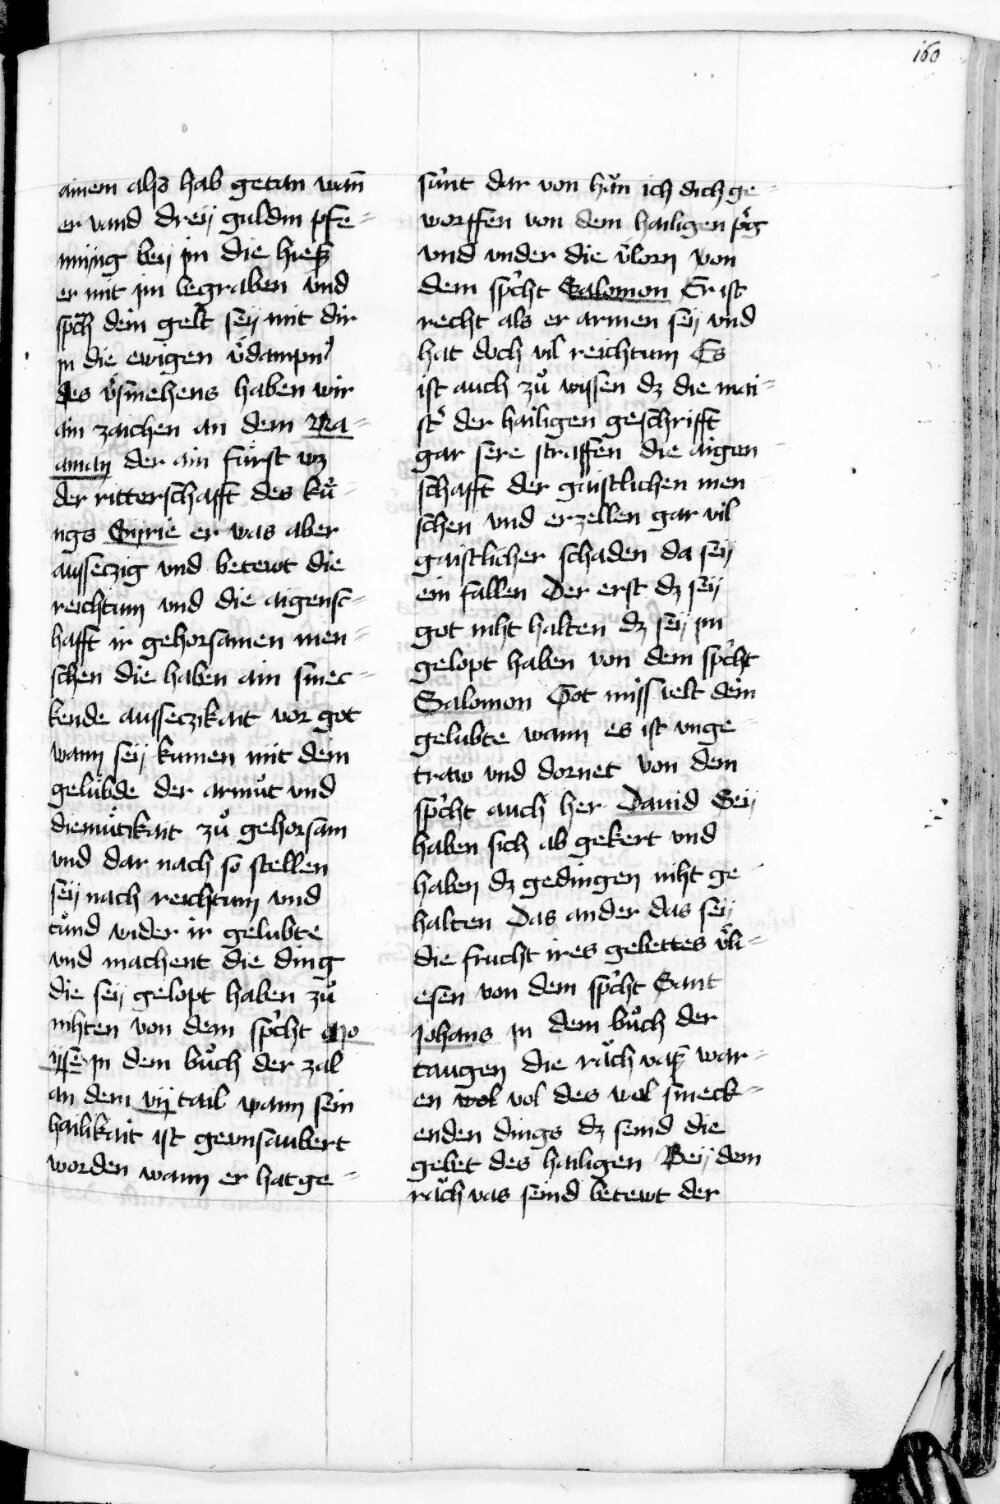 160
ainem alſo hab getan wan̄
er vand dreÿ guldin pfe⸗
nnīng beÿ im die hieſz
er mit im begraben vnd
ſp̊ch dein gelt ſeÿ mit dir
jn die ewigen v̊dampn̄
des v̊ſmehens haben wir
ain zaichen an dem Na⸗
aman der ain fürſt wz
der ritterſchafft des kü⸗
ngs Sÿrie er was aber
auſſeczig vnd betewt die
reichtum vnd die aigenſc⸗
hafft ir gehorſamen men⸗
ſchen die haben ain ſmec⸗
kende auſſeczikait vor got
wann ſeÿ kumen mit dem
gelübde der armůt vnd
diemůtikait zů gehorſam
vnd dar nach ſo ſtellen
ſeÿ nach reichtum vnd
tůnd wider ir gelubte
vnd machent die ding
die ſeÿ gelopt haben zů
nihten von dem ſp̊cht Mo
ÿſes in dem bůch der zal
an dem vij tail wann ſein
hailikait iſt geunſaubert
worden wann er hat ge⸗
fünt dar von hän ich dich ge⸗
worffen von dem hailigen p̊g
vnd vnder die v̊lorn von
dem ſp̊cht Salomon Er iſt
recht als er armen ſeÿ vnd
hat doch vil reichtum Es
iſt auch zů wiſſen dz die mai⸗
ſt̊ der hailigen geſchrifft
gar ſere ſtraffen die aigen
ſchafft der gaiſtlichen men
ſchen vnd erzellen gar vil
gaiſtlicher ſchaden da ſeÿ
ein fallen Der erſt dz ſeÿ
got niht halten dz ſeÿ im
gelopt haben von dem ſp̊cht
Salomon Got miſſvelt dein
gelubte wann es iſt vnge
traw vnd dornet von dem
ſp̊cht auch her Dauid Seÿ
haben ſich ab gekert vnd
haben dz gedingen niht ge⸗
halten Das ander das ſeÿ
die frucht ires gebettes v̊li⸗
eſen von dem ſp̊cht Sant
Johans in dem bůch der
taugen die räch vaſz war⸗
en wol vol des wol ſmeck⸗
enden dings dz ſeind die
gebet des hailigen Beÿ dem
räch vas ſeind betewt der